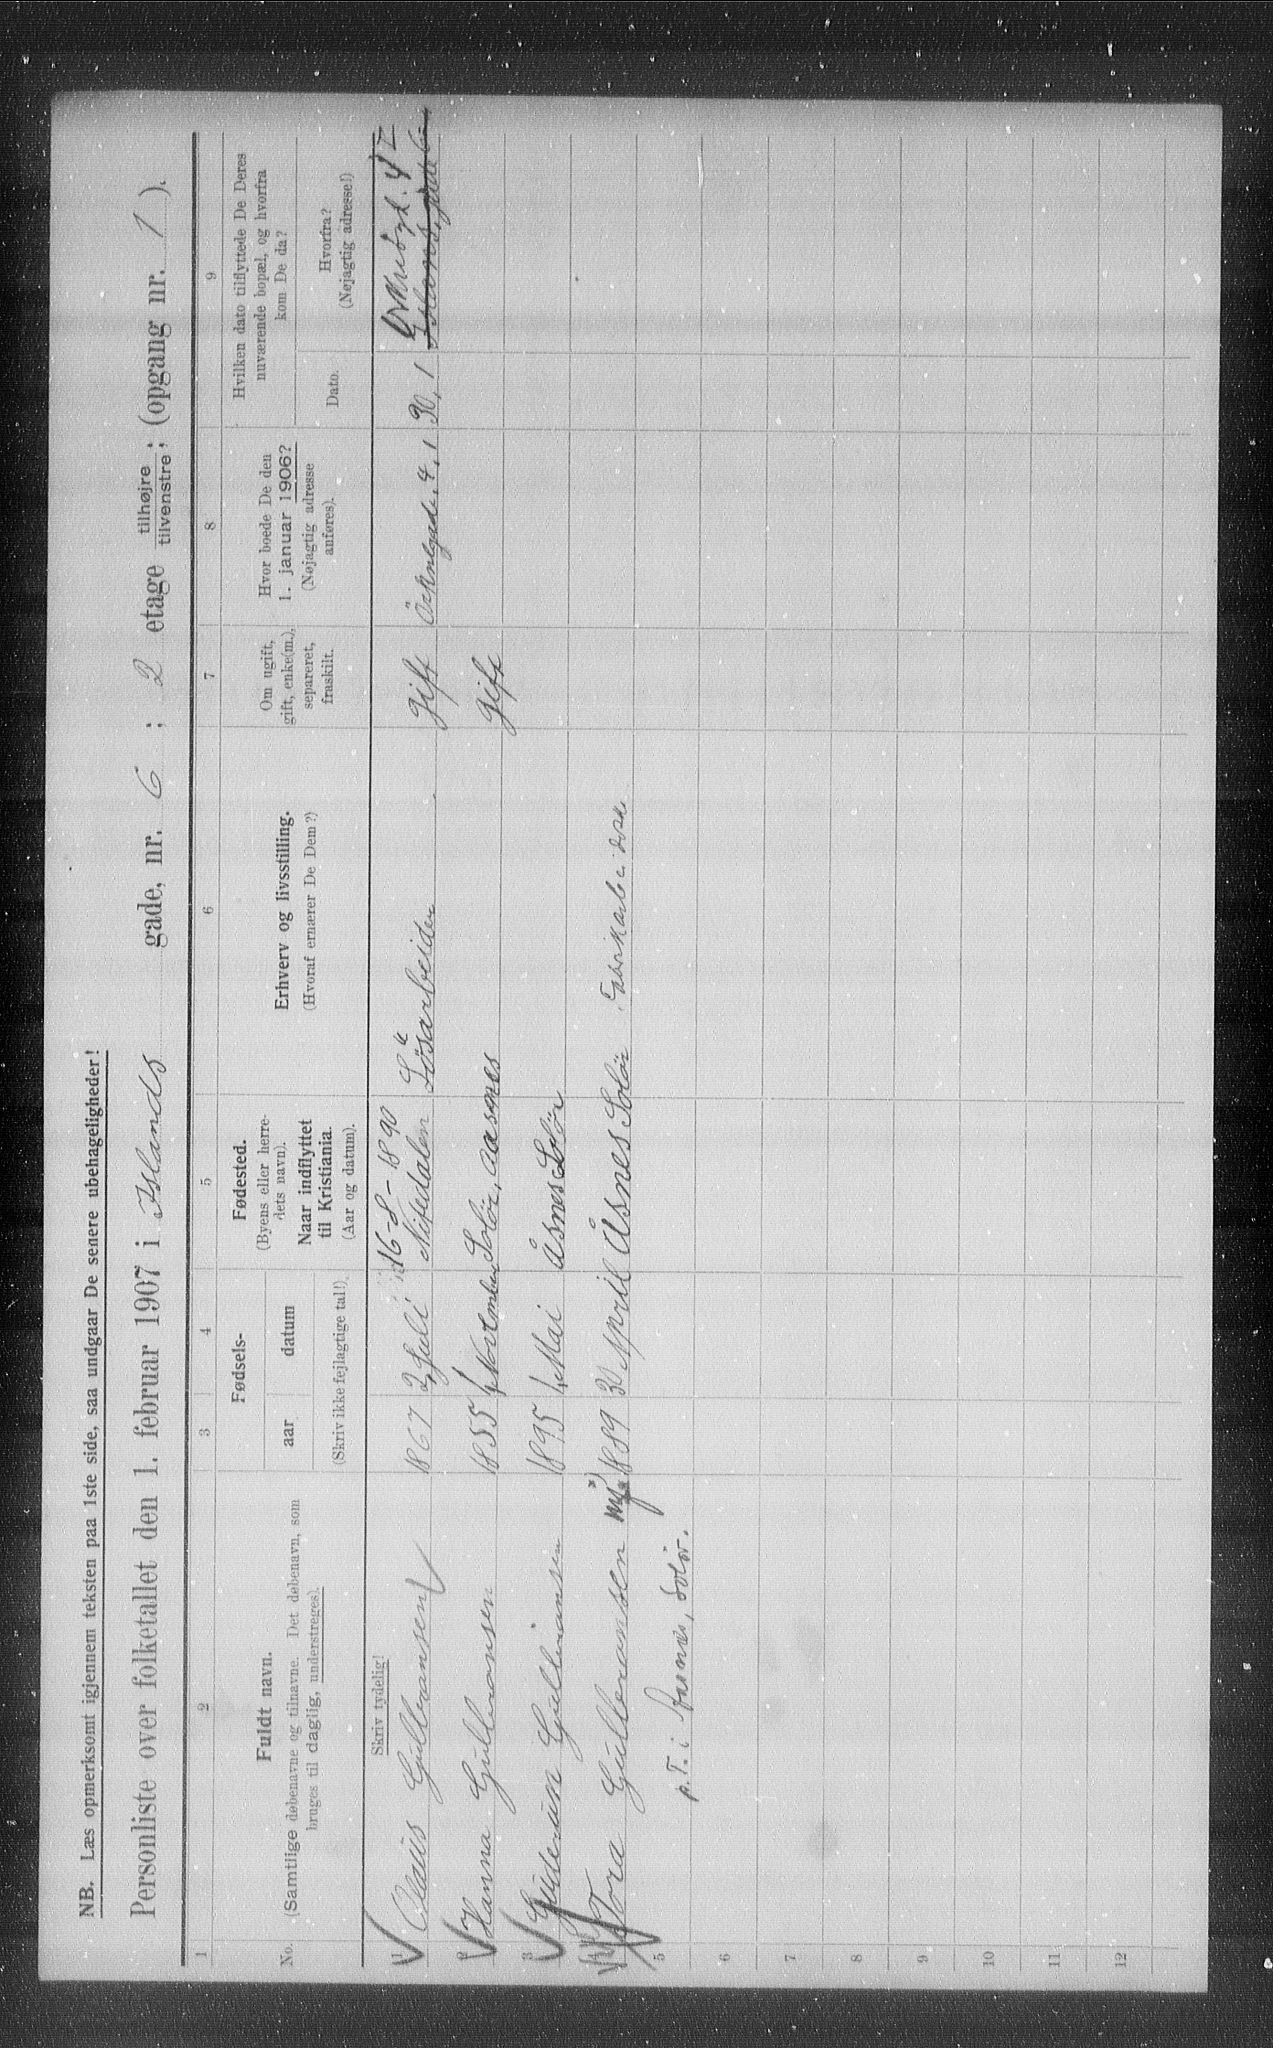 NB. Læs opmerksomt igjennem teksten paa 1ste side, saa undgaar De senere ubehageligheder!
Personliste over folketallet den 1. februar 1907 i Islands gade, nr. 6 ; 2 etage tilhøjre / tilvenstre ; (opgang nr. 1 ).
1 2 3 4 5 6 7 8 9
No.
Fuldt navn.
(Samtlige døbenavne og tilnavne. Det døbenavn, som
bruges til daglig, understreges).
Fødsels-
aar datum
(Skriv ikke fejlagtige tal!).
Fødested.
(Byens eller herre-
dets navn).
Naar indflyttet
til Kristiania.
(Aar og datum).
Erhverv og livsstilling.
(Hvoraf ernærer De Dem?)
Om ugift,
gift, enke(m.),
separeret,
fraskilt.
Hvor boede De den
1. januar 1906?
(Nøjagtig adresse
anføres).
Hvilken dato tilflyttede De Deres
nuværende bopæl, og hvorfra
kom De da?
Dato.
Hvorfra?
(Nøjagtig adresse!)
Skriv tydelig!
16-8-1890
1 Claus Gulbransen 1867 2 Juli Nittedalen Løsarbeider gift 30, 1
2 Hanna Gulbransen 1855 1 November Solør, Aasnes gift
3 Guderun Gulbransen 1895 1 Mai Åsnes Solør
4 Tora Gulbransen 1889 30 April Åsnes Solør Fabrikarbeiderske
5 p.T. i Aasnes, Solør.
6
7
8
9
10
11
12